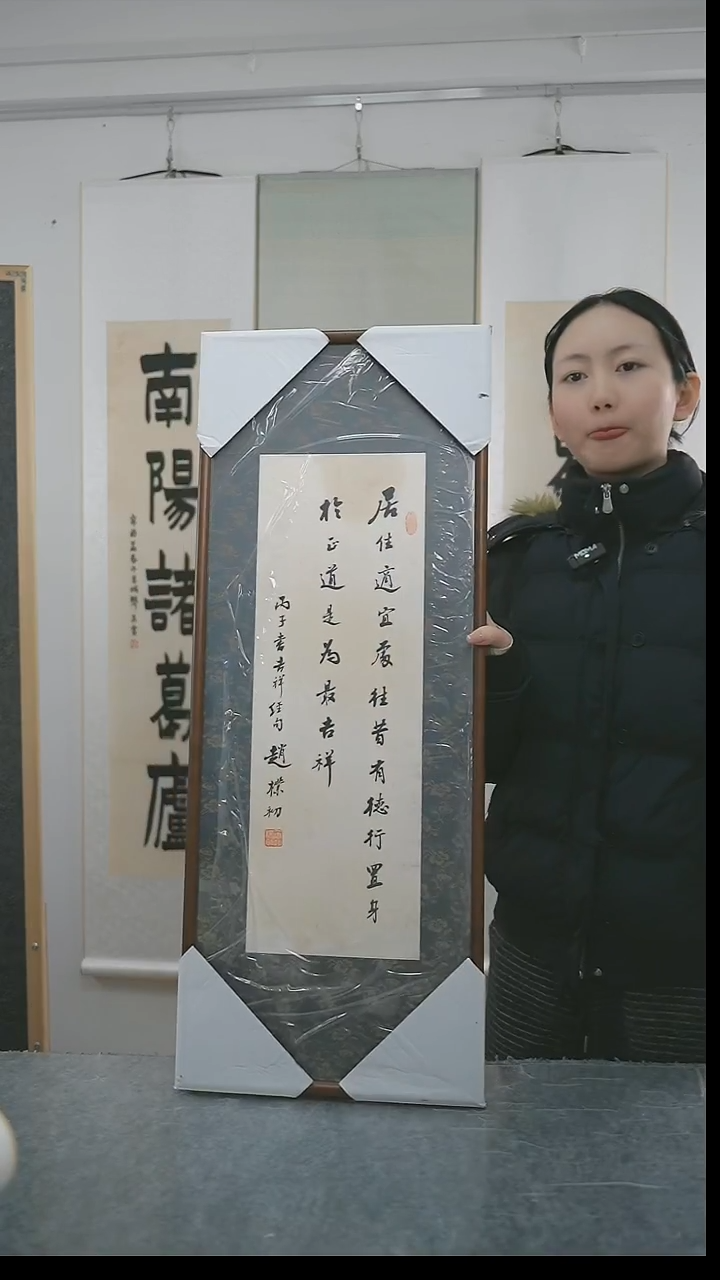 居住適宜處往昔有德行置身
於正道是為最吉祥
丙子書吉祥經句趙樸初
南陽諸葛廬